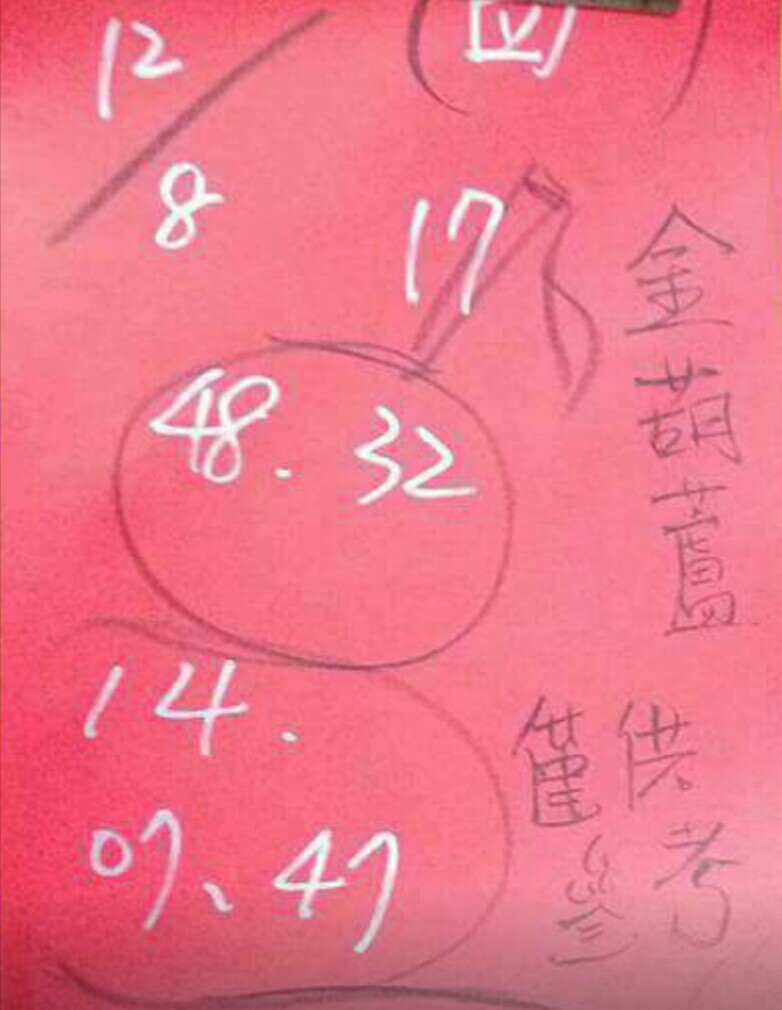 12/8
(四)
17
48. 32
14.
07、47
金葫蘆
僅供
參考